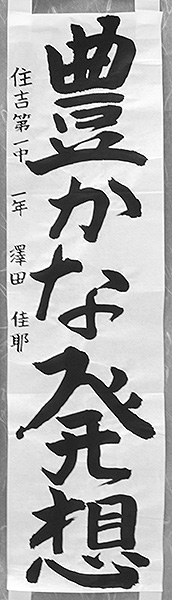 豊かな発想
住吉第一中 一年 澤田 佳耶